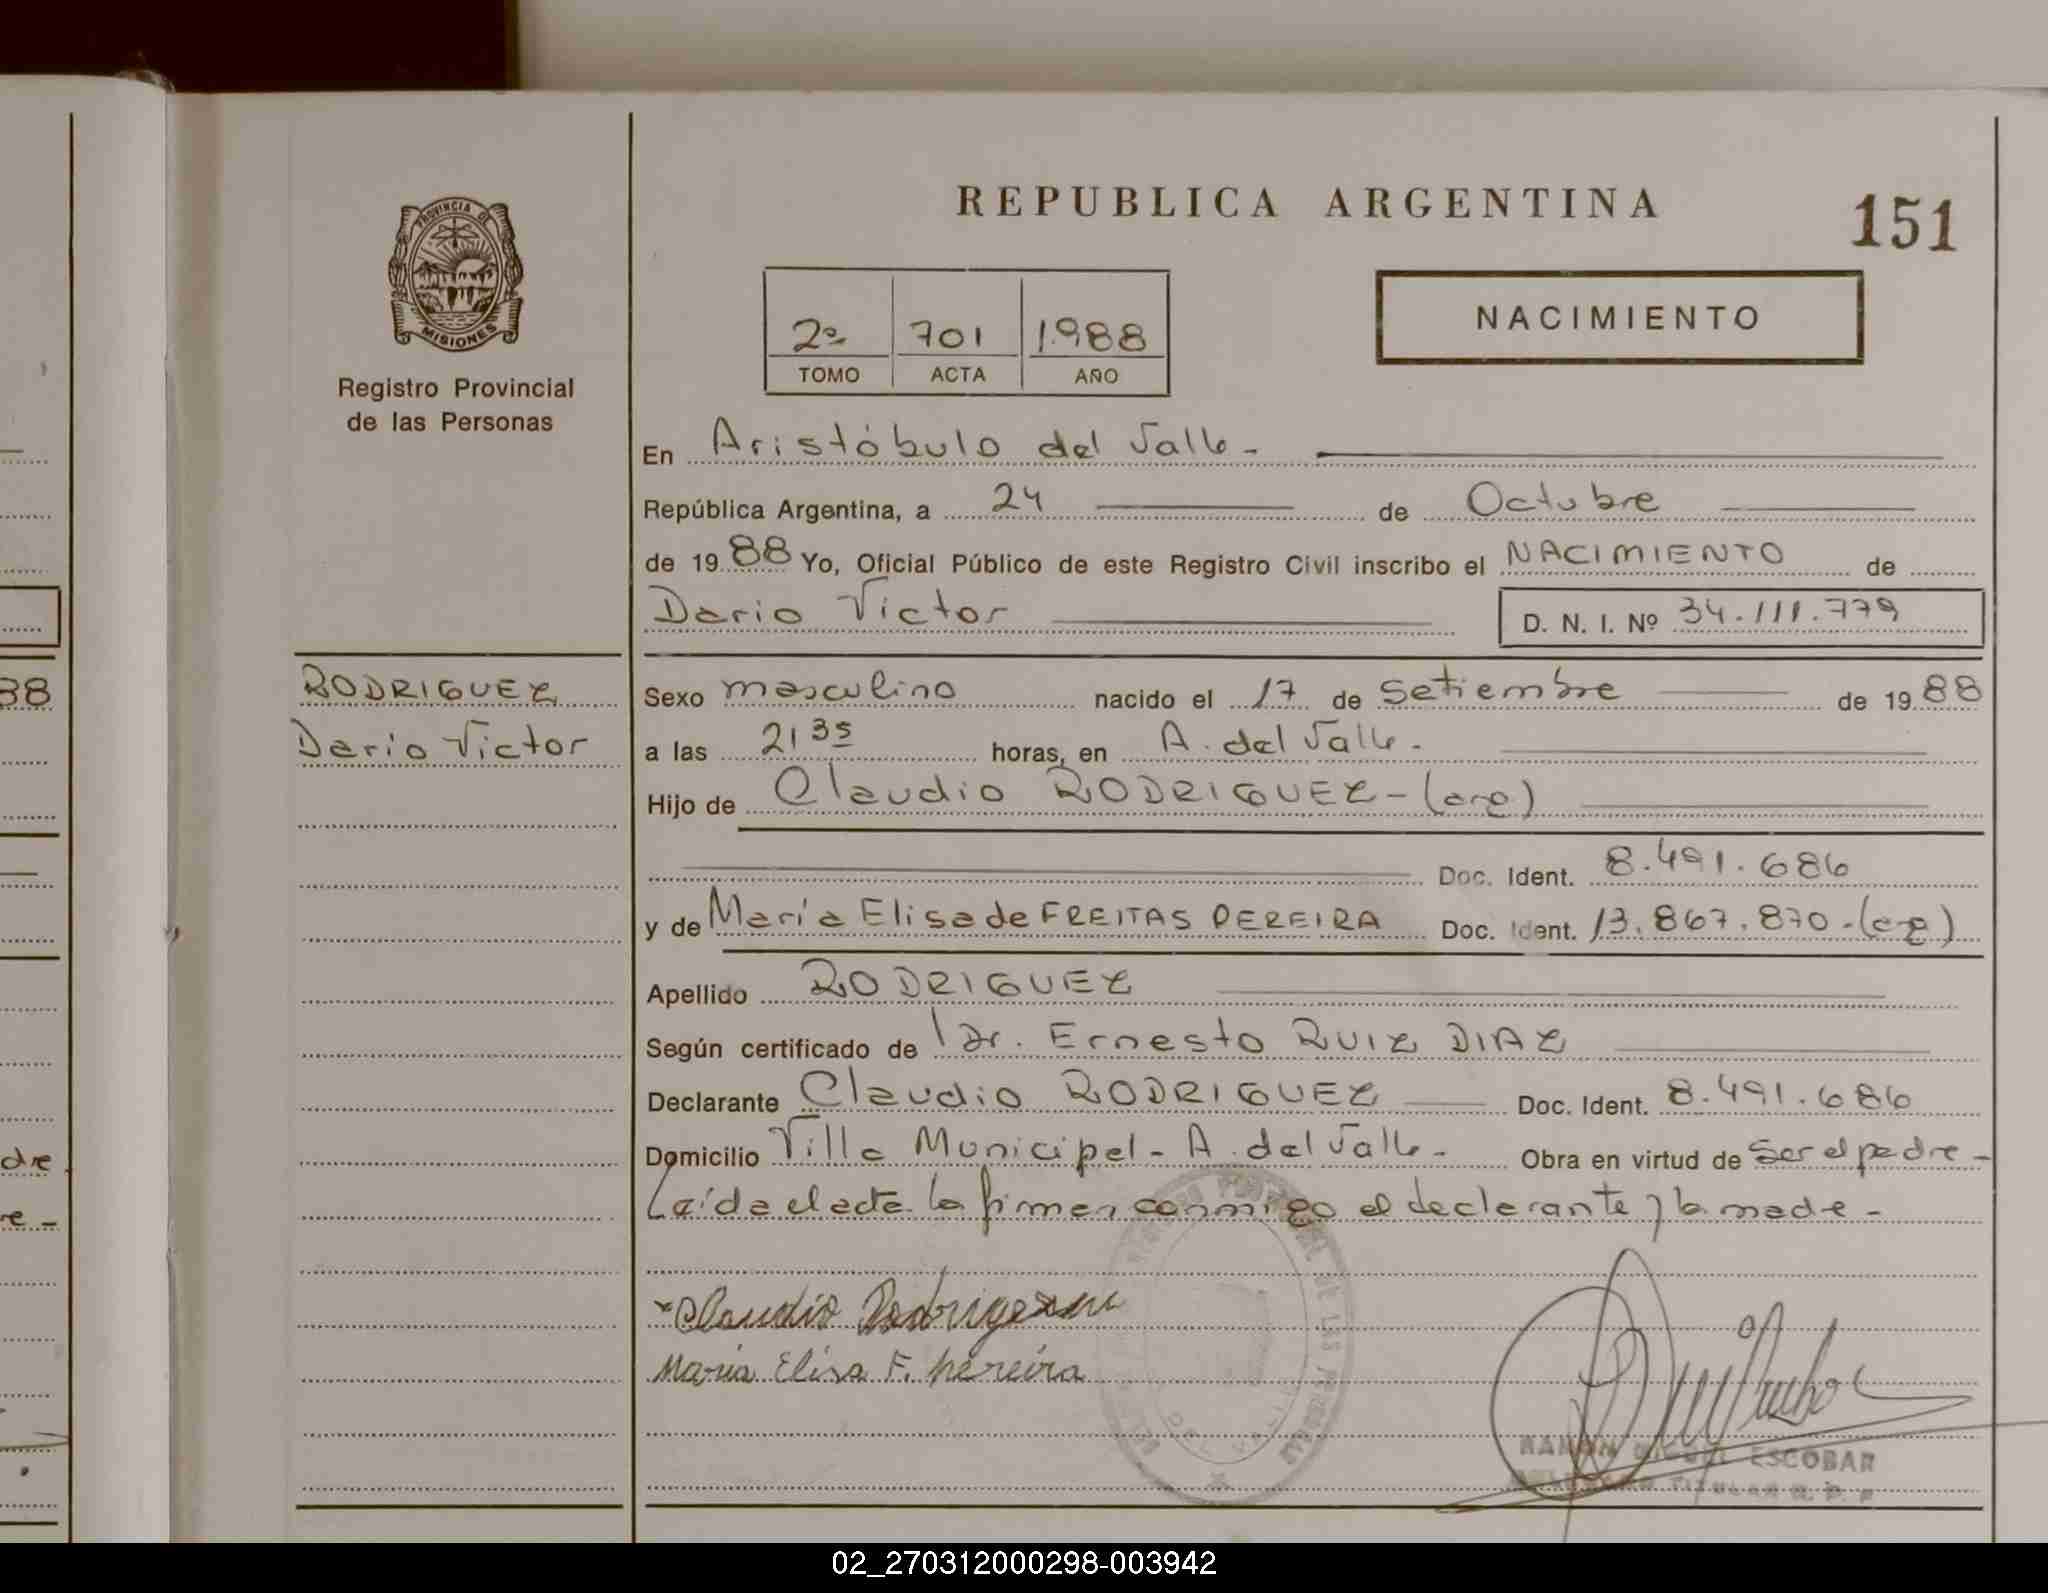 PROVINCIA DE
MISIONES
Registro Provincial
de las Personas
REPUBLICA ARGENTINA
151
2º 701 1.988
TOMO ACTA AÑO
NACIMIENTO
En Aristóbulo del Valle -
República Argentina, a 24 de Octubre
de 19 88 Yo, Oficial Público de este Registro Civil inscribo el NACIMIENTO de
Dario Victor D. N. I. Nº 34.111.779
RODRIGUEZ
Dario Victor
Sexo masculino nacido el 17 de Setiembre de 19 88
a las 21 35 horas, en A. del Valle.
Hijo de Claudio RODRIGUEZ - (arg)
Doc. Ident. 8.491.686
y de María Elisa de FREITAS PEREIRA Doc. Ident. 13.867.870 - (arg)
Apellido RODRIGUEZ
Según certificado de Dr. Ernesto RUIZ DIAZ
Declarante Claudio RODRIGUEZ Doc. Ident. 8.491.686
Domicilio Villa Municipal - A. del Valle - Obra en virtud de ser el padre -
Leída el acta la firman conmigo el declarante y la madre -
Claudio
Maria Elisa F. Pereira
DEL VALLE
RAMON ESCOBAR
TITULAR R. P. P
38
dre
re -
02_270312000298-003942